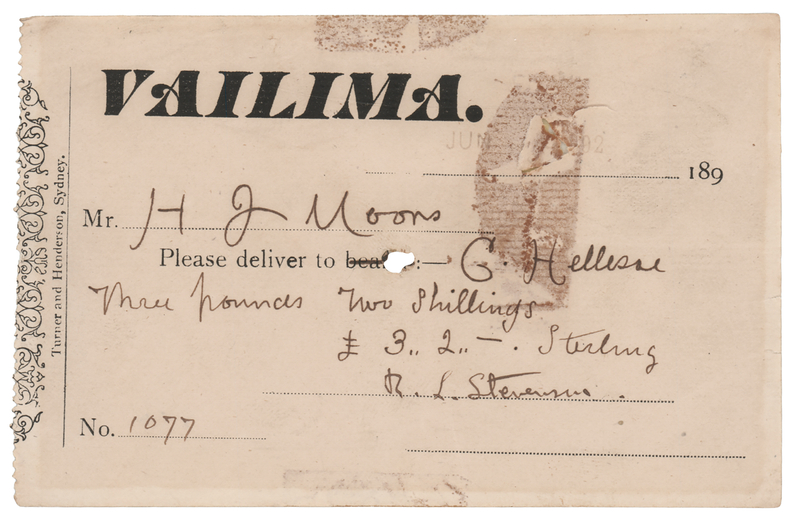 VAILIMA.
JUN
189
Mr. H J Moors
Please deliver to :— G. Hellesoe
Three pounds Two Shillings
£ 3,, 2,, — . Sterling
R. L. Stevenson .
No. 1077
Turner and Henderson, Sydney.